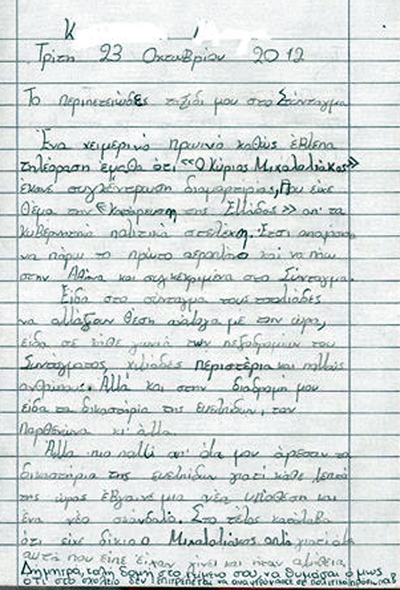 Κ
Τρίτη 23 Οκτωβρίου 2012
Το περιπετειώδες ταξίδι μου στο Σύνταγμα
Ένα χειμερινό πρωινό καθώς έβλεπα
τηλεόραση έμαθα ότι «Ο Κύριος Μιχαλολιάκος»
έκανε συγκέντρωση διαμαρτυρίας, που είχε
θέμα την «Κατάρρευση της Ελλάδος» απ' τα
κυβερνητικά πολιτικά στελέχη. Έτσι αποφάσισα
να πάρω το πρώτο αεροπλάνο και να πάω
στην Αθήνα και συγκεκριμένα στο Σύνταγμα.
Είδα στο σύνταγμα τους τσολιάδες
να αλλάζουν θέση ανάλογα με την ώρα,
είδα σε κάθε γωνιά των πεζοδρομίων του
Συντάγματος, χιλιάδες περιστέρια και πολλούς
ανθρώπους. Αλλά και στην διαδρομή μου
είδα τα δικαστήρια της ευελπίδων, τον
Παρθενώνα κι' άλλα.
Αλλά πιο πολύ απ' όλα μου άρεσαν τα
δικαστήρια της ευελπίδων γιατί κάθε λεπτό
της ώρας έβγαινε μια νέα υπόθεση και
ένα νέο σκάνδαλο. Στο τέλος κατάλαβα
ότι είχε δίκιο ο Μιχαλολιάκος γιατί όλα
αυτά που είπε είχαν γίνει και ήταν αλήθεια.
Δήμητρα, καλή δομή στο κείμενο σου, να θυμάσαι όμως
ότι στο σχολείο δεν επιτρέπεται να αναφερόμαστε σε πολιτικά